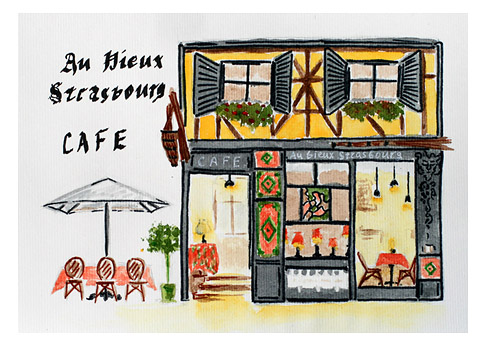 Au Vieux
Strasbourg
CAFE
CAFE
Au Vieux Strasbourg